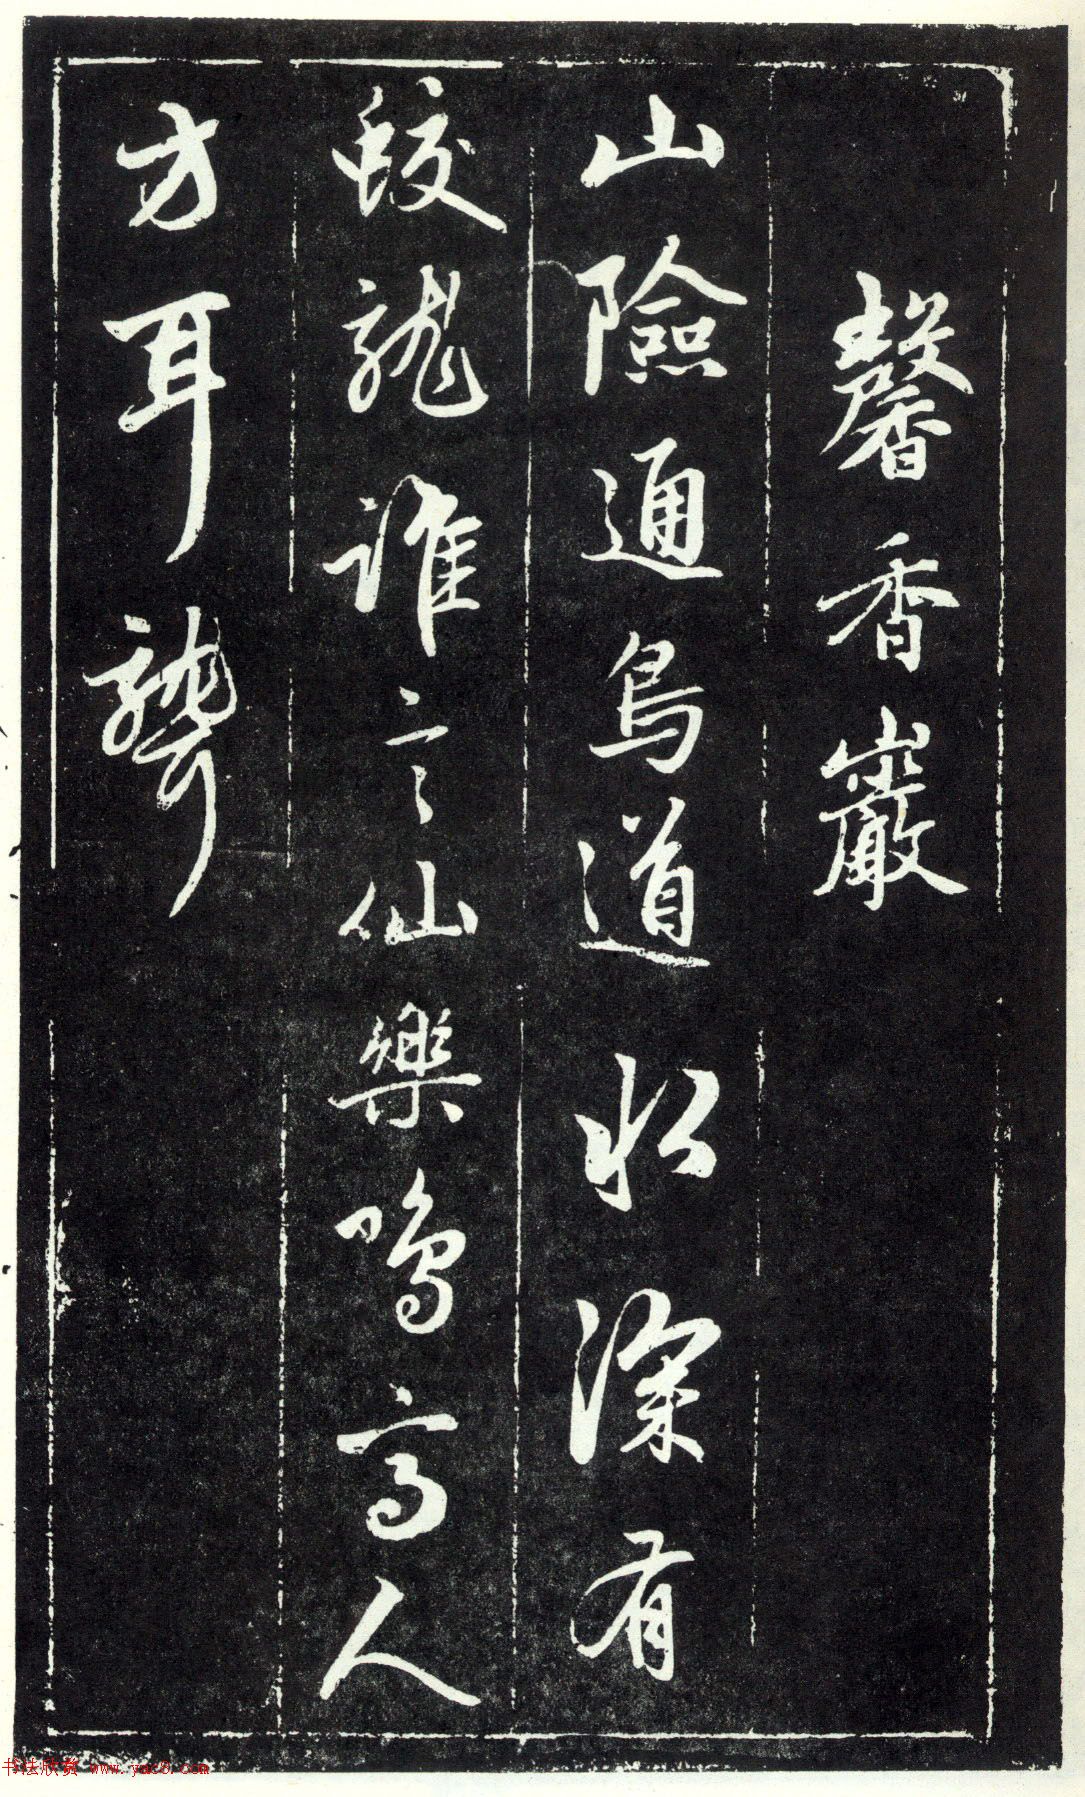 馨香巖
山險通鳥道深有
蛟龍誰言仙樂鳴高人
方耳聾
书法欣赏 www.yac8.com